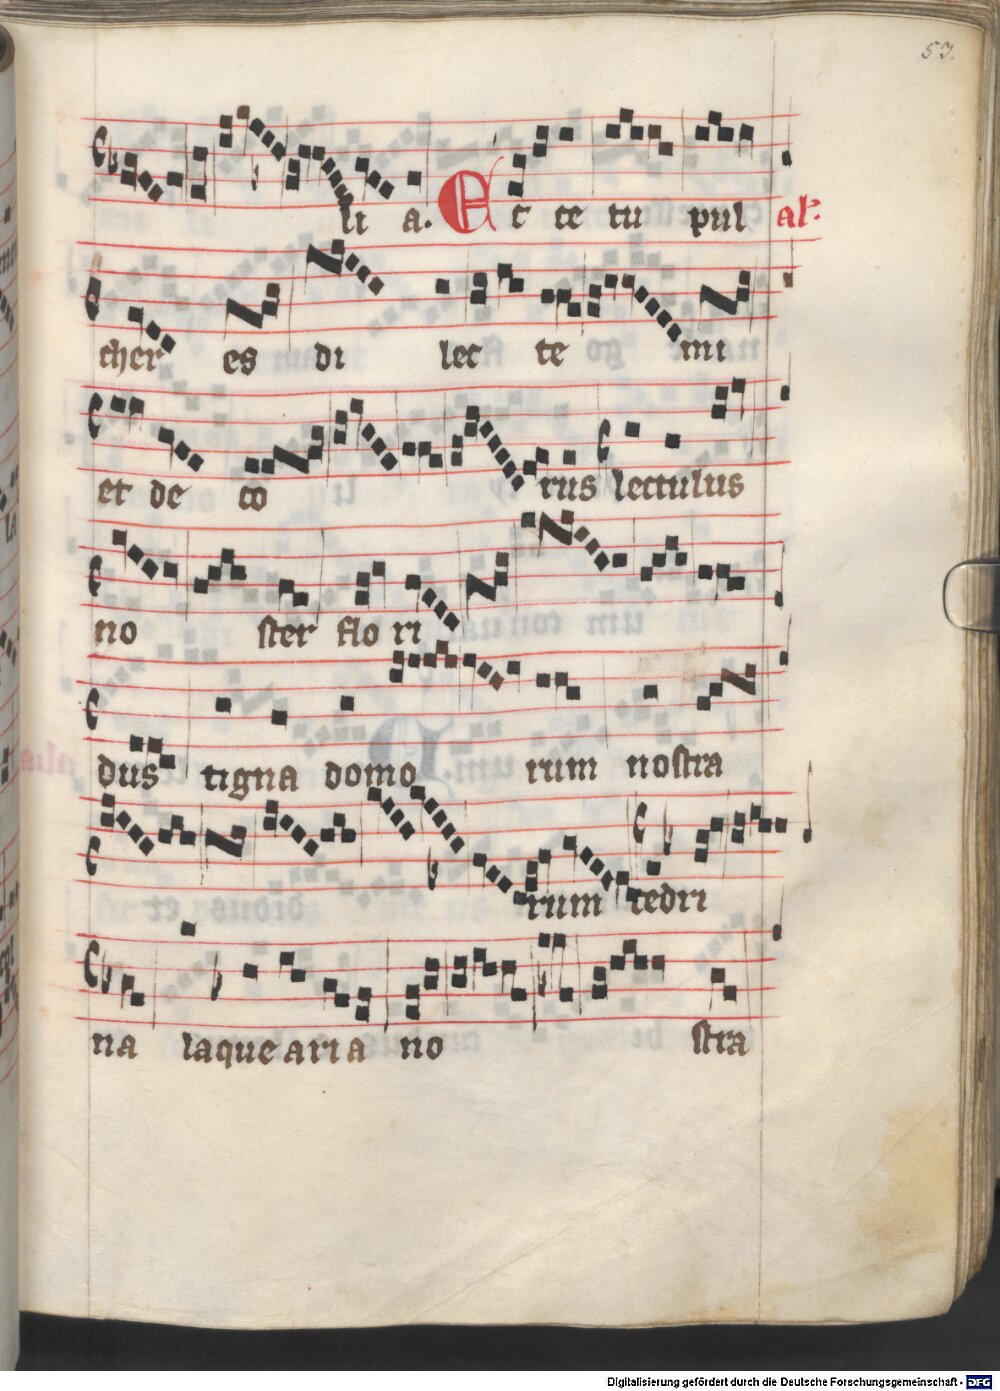 53.
li a. Et te tu pul al:
cher es di lec te mi
et de co rus lectulus
no ster flo ri
dus tigna domo rum nostra
rum cedri
na laque aria no stra
Digitalisierung gefördert durch die Deutsche Forschungsgemeinschaft - DFG